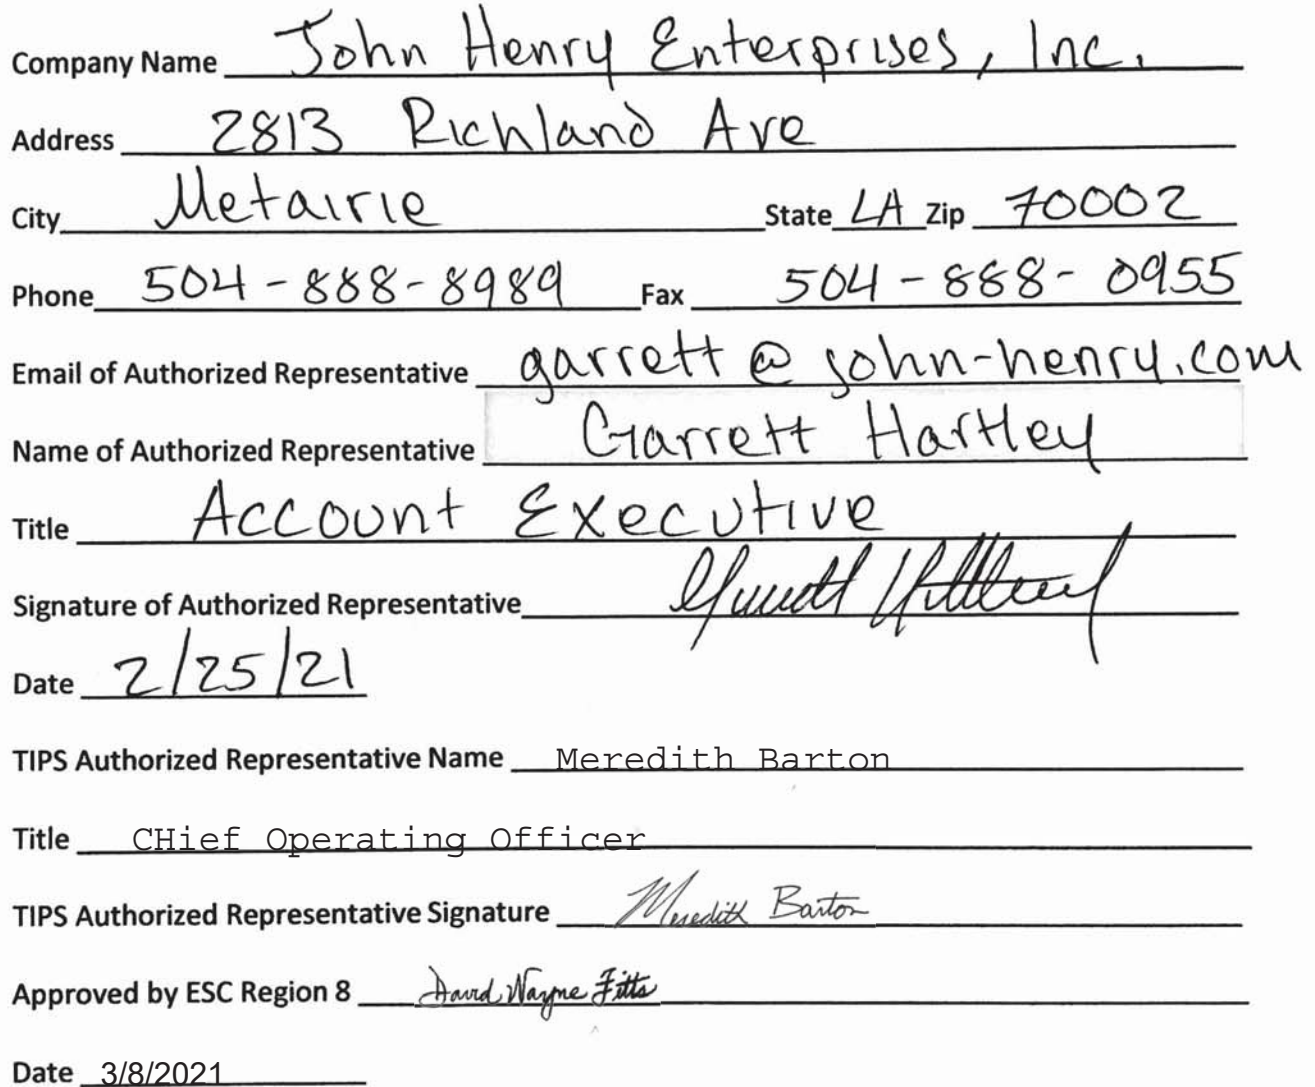 Company Name John Henry Enterprises, Inc.
Address 2813 Richland Ave
City Metairie State LA Zip 70002
Phone 504-888-8989 Fax 504-888-0955
Email of Authorized Representative garrett@john-henry.com
Name of Authorized Representative Garrett Hartley
Title Account Executive
Signature of Authorized Representative Garrett Hartley
Date 2/25/21
TIPS Authorized Representative Name Meredith Barton
Title CHief Operating Officer
TIPS Authorized Representative Signature Meredith Barton
Approved by ESC Region 8 David Wayne Fitts
Date 3/8/2021